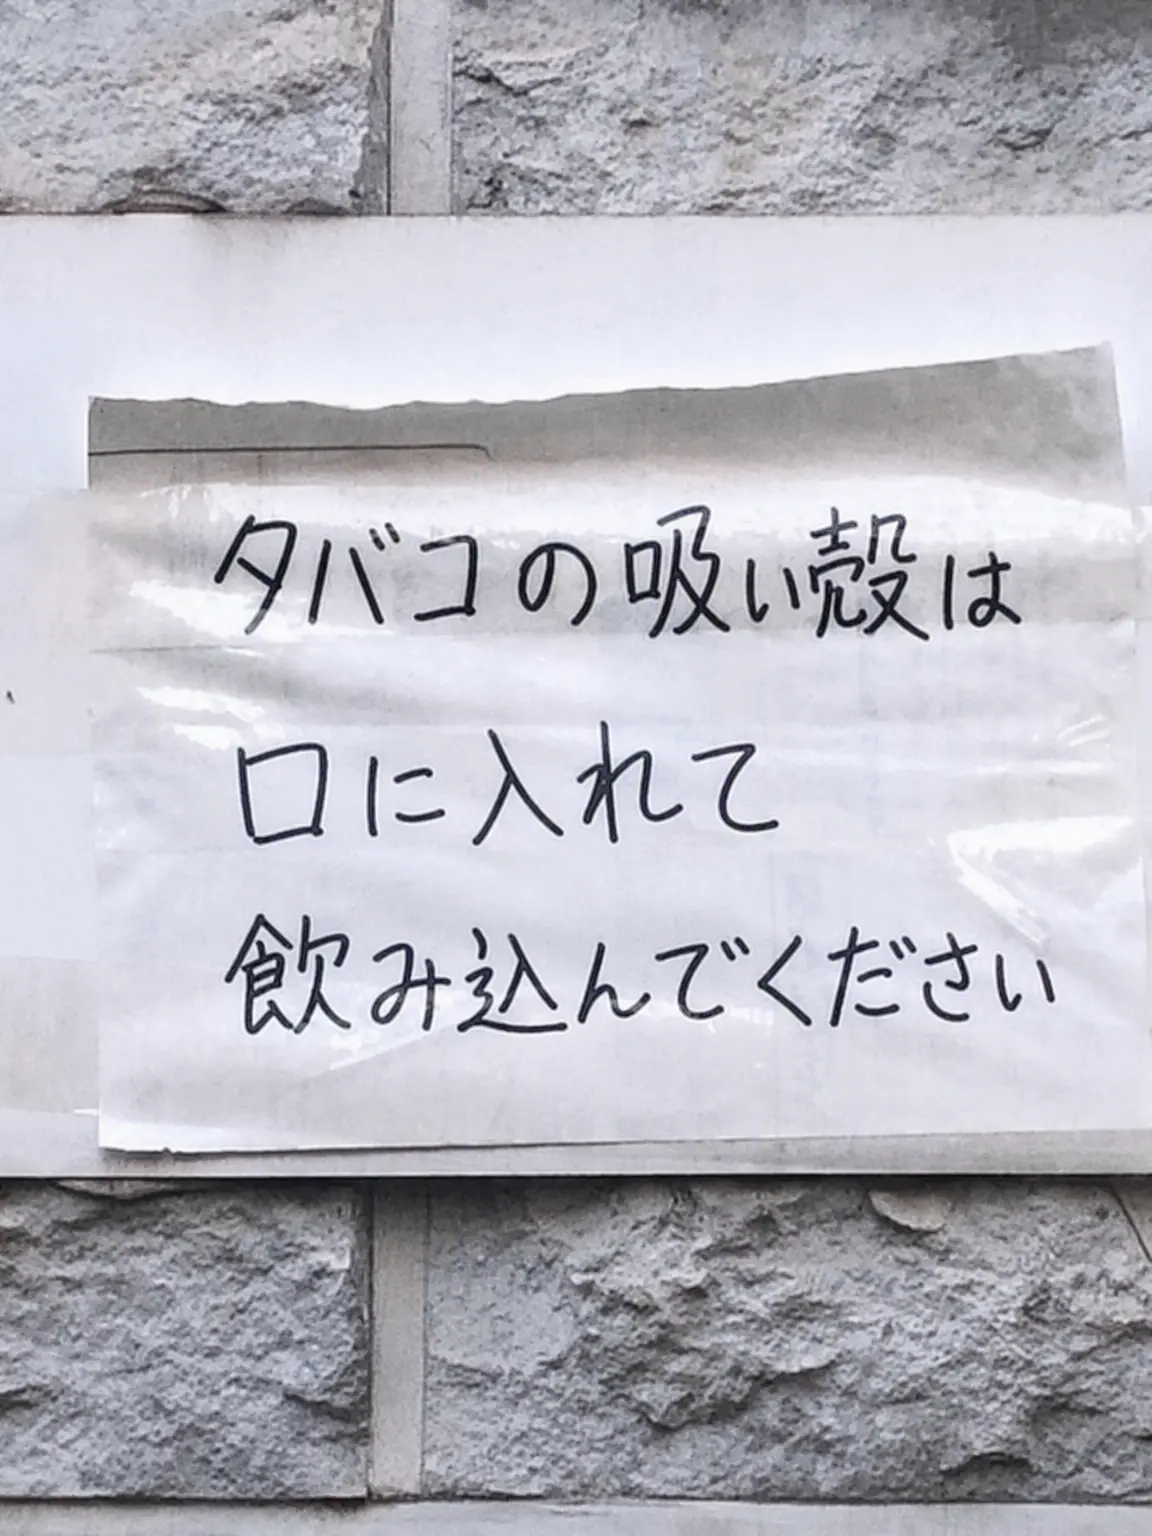 タバコの吸い殻は
口に入れて
飲み込んでください